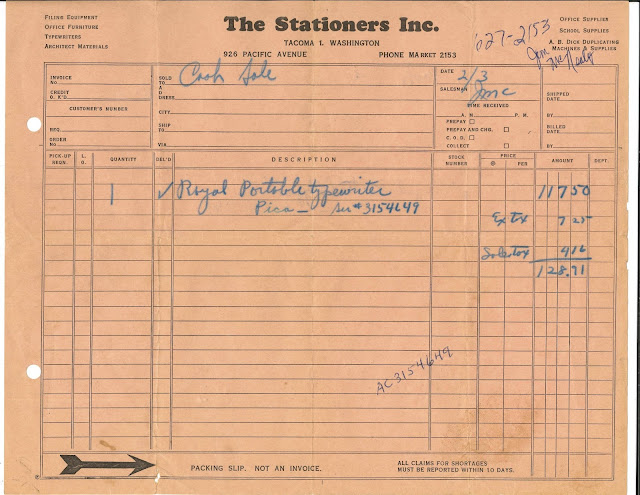 Filing Equipment
Office Furniture
Typewriters
Architect Materials
The Stationers Inc.
TACOMA 1, WASHINGTON
926 PACIFIC AVENUE PHONE MARKET 2153
Office Supplies
School Supplies
A. B. Dick Duplicating
Machines & Supplies
627-2153
Jim
INVOICE
NO.
CREDIT
O. K'D
CUSTOMER'S NUMBER
REQ.
NO.
ORDER
NO.
SOLD
TO
ADDRESS
Cash Sale
CITY
SHIP
TO
VIA
DATE 2/3
SALESMAN JMC
TIME RECEIVED
A. M. P. M.
PREPAY
PREPAY AND CHG.
C. O. D.
COLLECT
SHIPPED
DATE
BY
BILLED
DATE
BY
PICK-UP REQN. L. O. QUANTITY DEL'D DESCRIPTION STOCK NUMBER PRICE @ PER AMOUNT DEPT.
1 ✓ Royal Portable typewriter 117 50
Pica — Ser # 3154649
Ex Tx 7 25
Sales Tax 4 16
128.91
AC3154649
PACKING SLIP. NOT AN INVOICE.
ALL CLAIMS FOR SHORTAGES
MUST BE REPORTED WITHIN 10 DAYS.